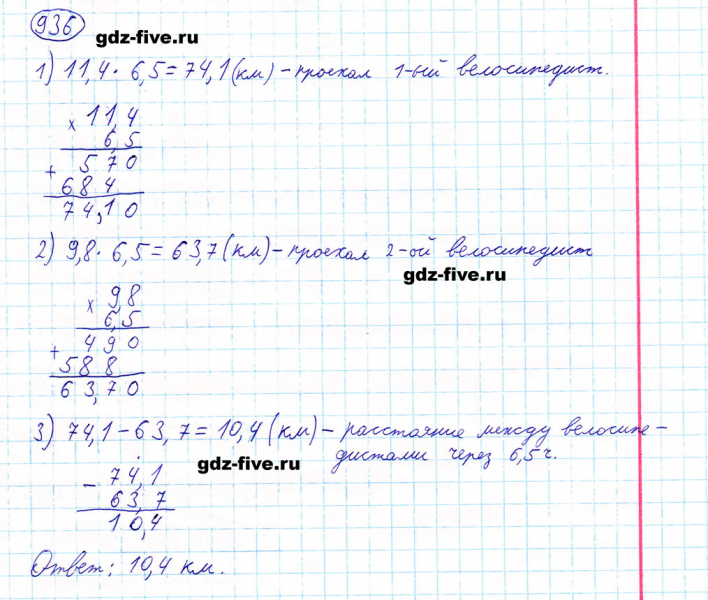 936
gdz-five.ru
1) 11,4 · 6,5 = 74,1 (км) – проехал 1-ый велосипедист.
x 11,4
6,5
+ 570
684
74,10
2) 9,8 · 6,5 = 63,7 (км) – проехал 2-ой велосипедист
gdz-five.ru
x 9,8
6,5
+ 490
588
63,70
3) 74,1 – 63,7 = 10,4 (км) – расстояние между велосипе-
дистами через 6,5 ч.
gdz-five.ru
– 74,1
63,7
10,4
Ответ: 10,4 км.